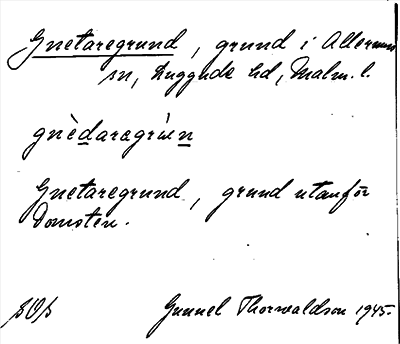 Gnetaregrund, grund i Allerums
sn, Luggude hd, Malm. l.
gnèdaragrùen
Gnetaregrund, grund utanför
Domsten.
Gunnel Thorwaldson 1945.